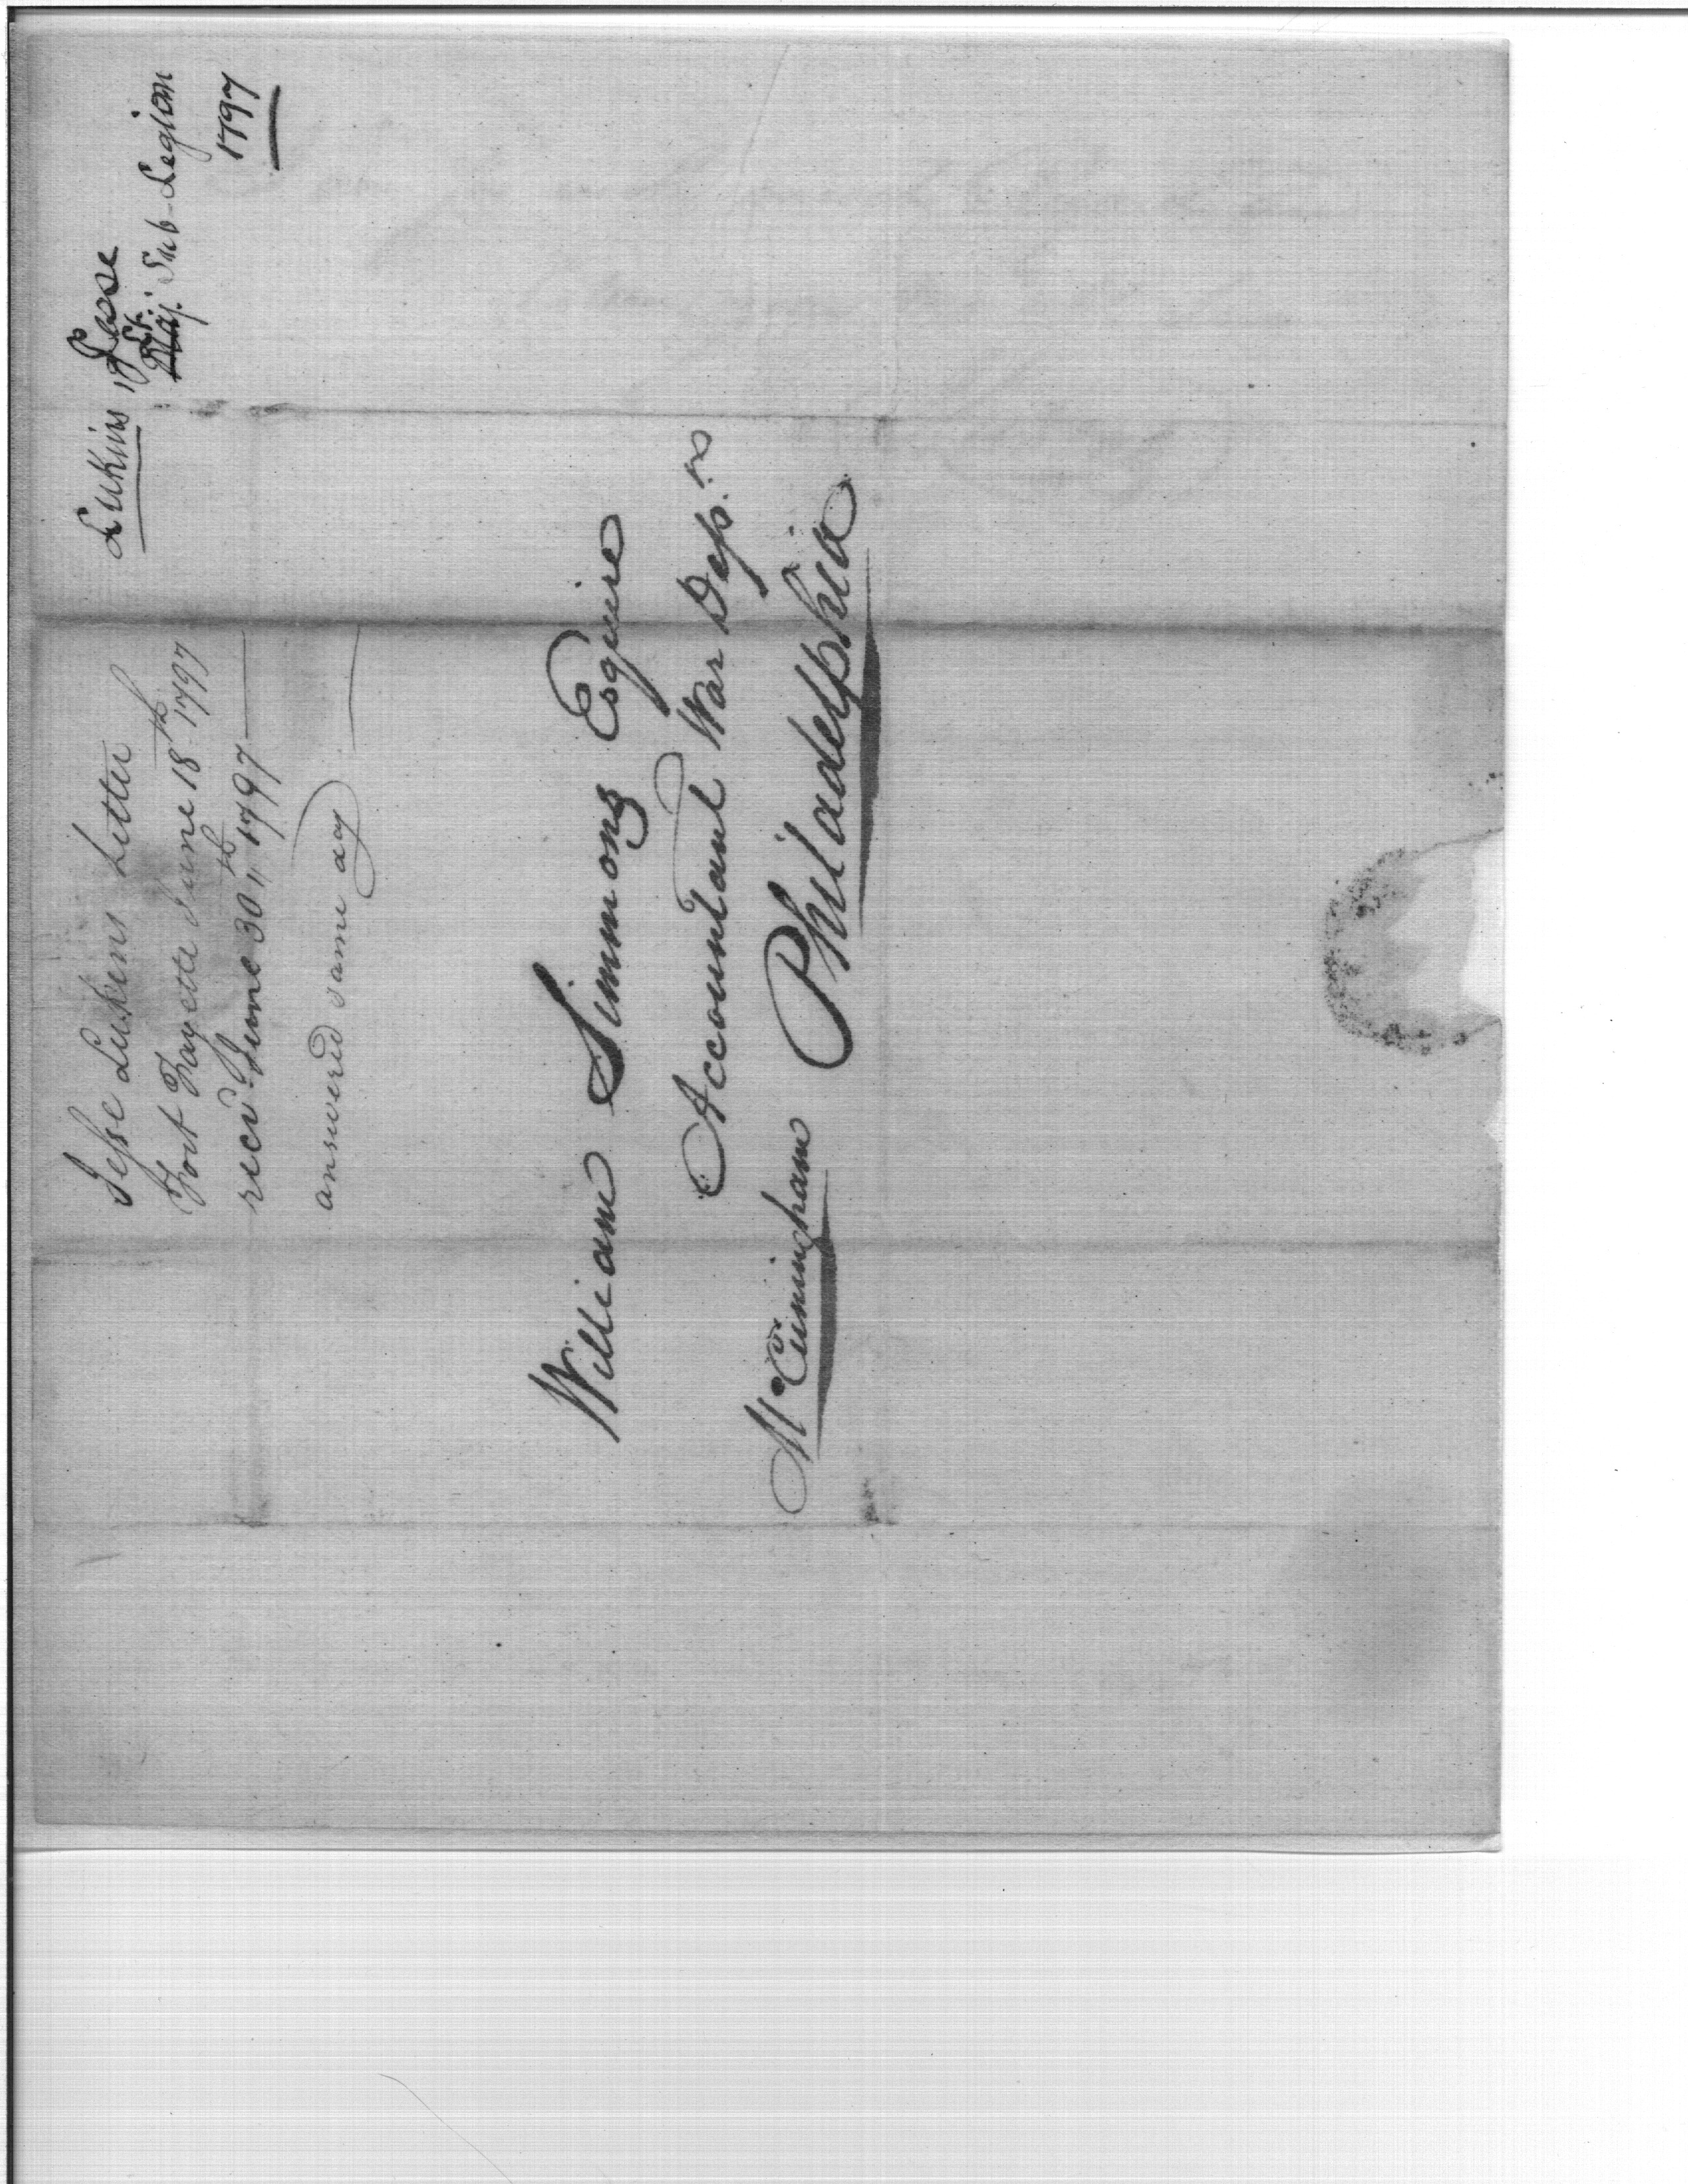 Jesse Lukens Letter
Fort Fayette June 18th 1797
recd. June 30th 1797
answered same day
Lukins Jesse
Lt.
Maj. Sub-Legion
1797
William Simmons Esquire
Accountant War Dep.
Mr Cuningham
Philadelphia